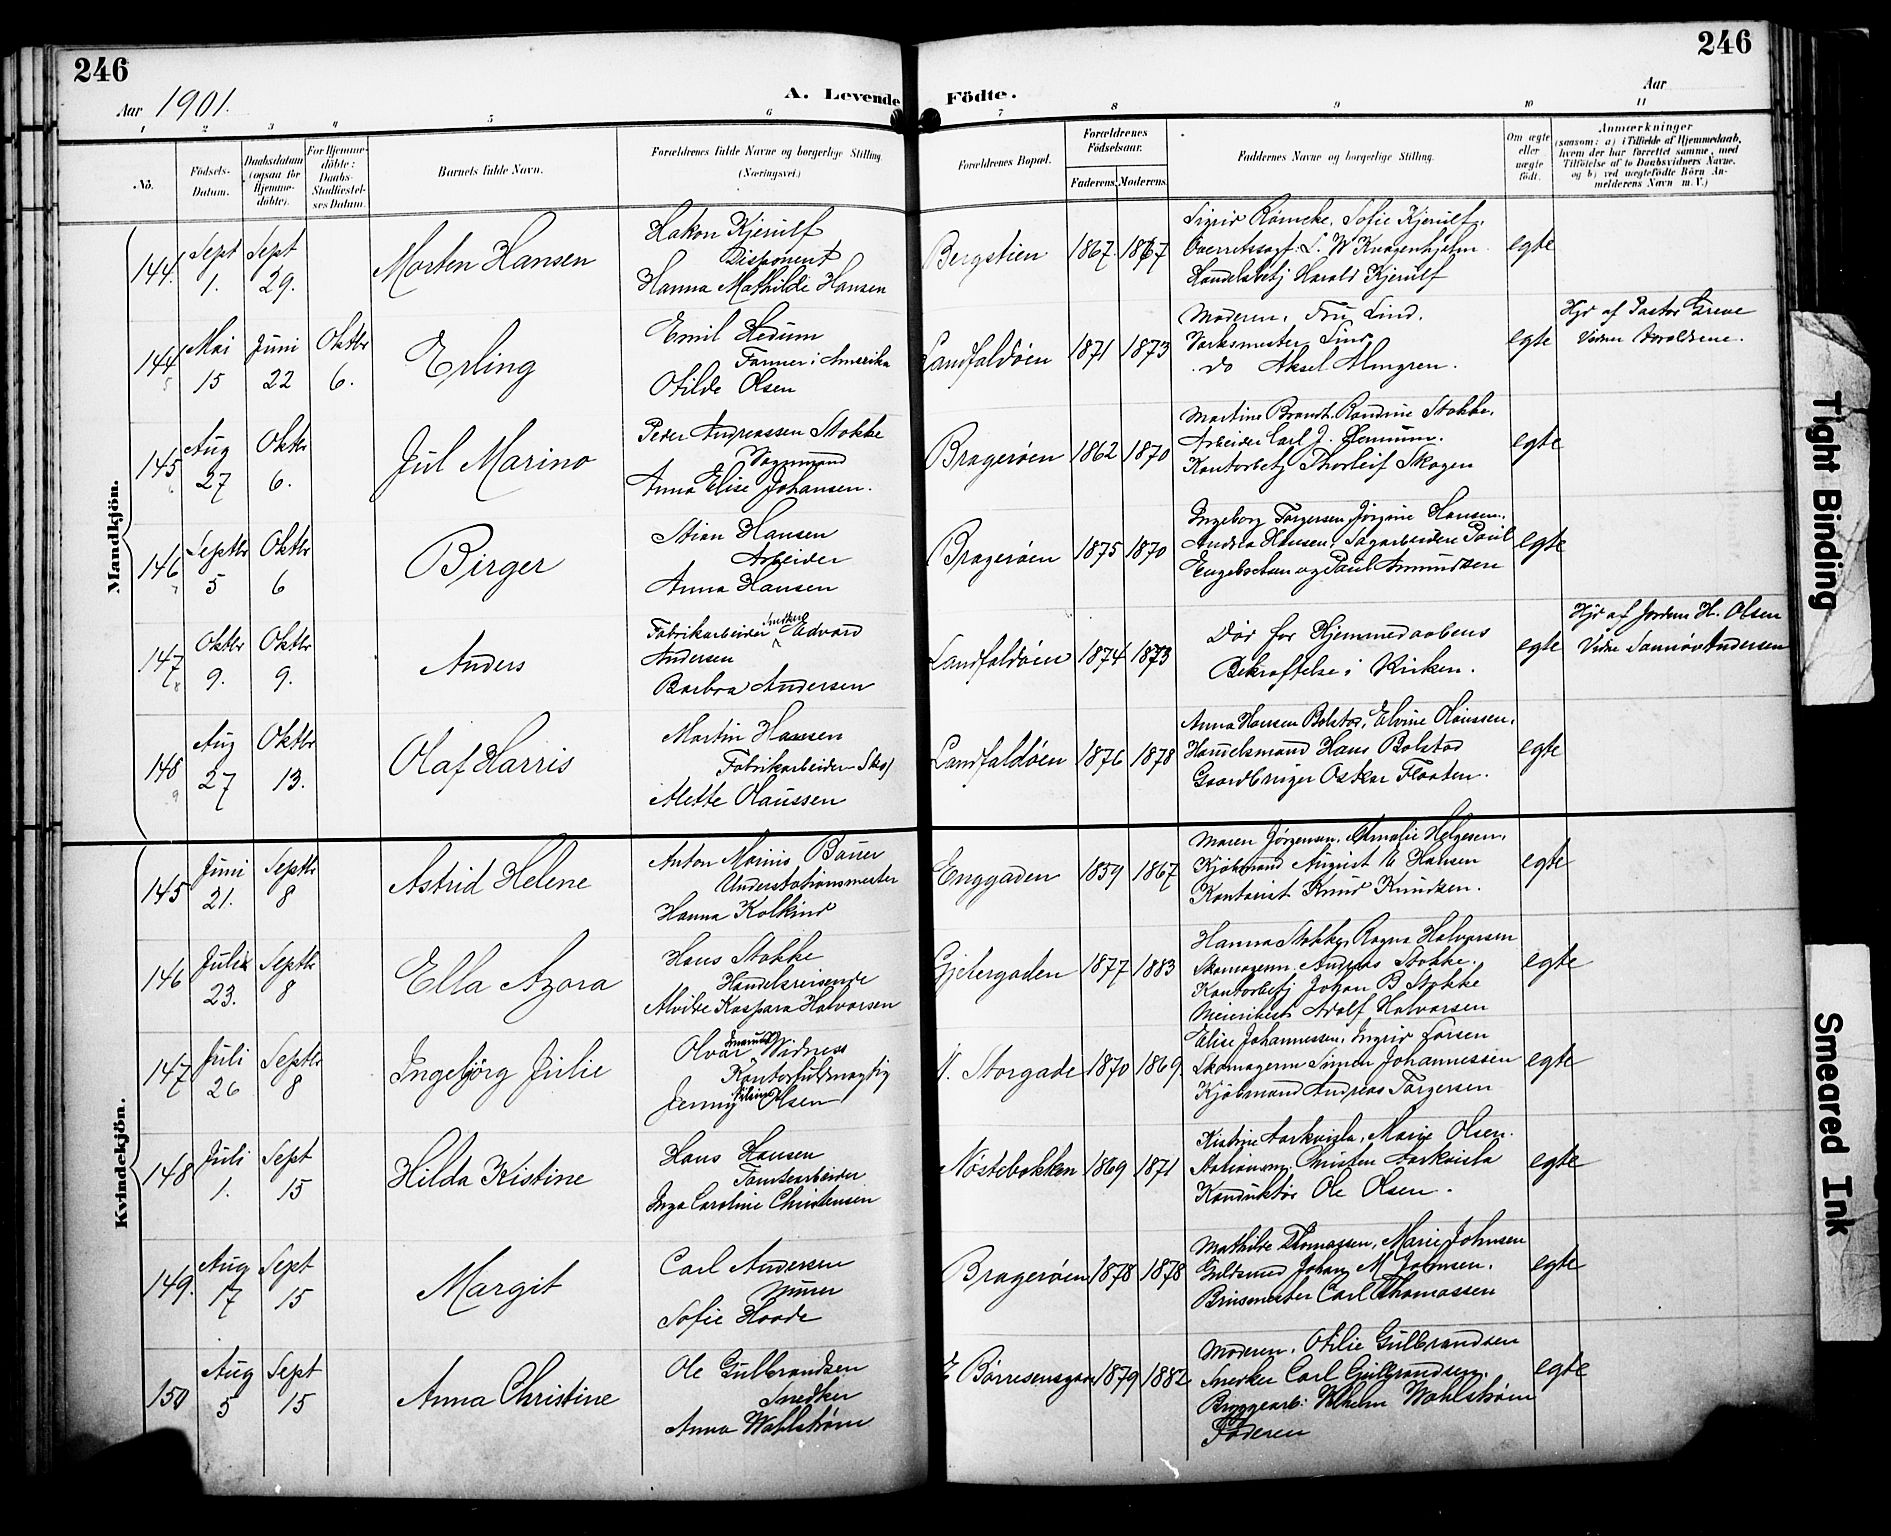 246
246
Aar 1901.
A. Levende Födte.
Aar
1 2 3 4 5 6 7 8 9 10 11
No.
Födsels-
Datum.
Daabsdatum
(ogsaa for
Hjemme-
döbte).
For Hjemme-
döbte:
Daabs-
Stadfæstel-
ses Datum.
Barnets fulde Navn.
Forældrenes fulde Navne og borgerlige Stilling
(Næringsvei.)
Forældrenes Bopæl.
Forældrenes
Födselsaar.
Faderens. Moderens.
Faddernes Navne og borgerlige Stilling.
Om ægte
eller
uægte
födt.
Anmærkninger
(saasom: a) i Tilfælde af Hjemmedaab,
hvem der har forrettet samme, med
Tilföielse af to Daabsvidners Navne.
og b) ved uægtefödte Börn An-
melderens Navn m. V.)
Mandkjön.
144. Sept 1. Sept 29. Morten Hansen
Hakon Kjerulf
Disponent
Hanna Mathilde Hansen
Bergstien 1867. 1867
Sigrid Römcke, Sofie Kjerulf,
Overretssagf. L. W Knagenhjelm
Handelsbetj Harald Kjerulf
egte
144 Mai 15 Juni 22 Oktbr 6. Erling
Emil Hedum
Farmer i Amerika
Otilde Olsen
Landfaldöen 1871 1873
Moderen, Fru Lind.
Værksmester Lind
do Aksel Almgren.
egte
Hjd af Pastor Greve
145 Aug 27 Oktbr 6. Jul Marino
Peder Andreassen Stokke
Vognmand
Anna Elise Johansen.
Bragerøen 1862 1870
Martine Brandt, Randine Stokke,
Arbeider Carl J.
Kontorbetj Thorleif Skogen
egte
146 Septbr 5 Oktbr 6 Birger
Stian Hansen
Arbeider
Anna Hansen
Bragerøen 1875 1870
Ingeborg Torgersen, Jörgine Hansen,
Andrea Hansen, Sagarbeidere Paul
Engebretsen og Paul Amundsen
egte
147 Oktbr 9. Oktbr 9. Anders
Fabrikarbeider Edvard
Andersen
Barbra Andersen
Landfaldöen 1874 1873
Död før Hjemmedaabens
Bekræftelse i Kirken.
egte
Hjd af Jordem H. Olsen
Vidne Andersen
148 Aug 27 Oktbr 13. Olaf Harris
Martin Hansen
Fabrikarbeider
Alette Olaussen
Landfaldöen 1876 1878
Anna Hansen Bolstad, Elvine Olaussen,
Handelsmand Hans Bolstad
Gaardbruger Oskar Flaaten.
egte
Kvindekjön.
145 Juni 21. Septbr 8 Astrid Helene
Anton Bauer
Understationsmester
Hanna Kolkind
Enggaden 1859 1867
Maren Jørgensen, Amalie Helgesen,
Kjøbmand August E Hansen
Kontorist Knud Knudsen.
egte
146 Juli 23. Septbr 8 Ella Azora
Hans Stokke
Handelsreisende
Alvilde Kaspara Halvorsen
Gjetergaden 1877 1883
Hanna Stokke, Ragna Halvorsen
Skomagerm. Andreas Stokke.
Kontorbetj Johan B Stokke
Adolf Halvorsen
egte
147 Juli 26 Septbr 8 Ingebjörg Julie
Olvar Widness
Kontorfuldmægtig
Jenny Olsen
N. Storgade 1870 1869
Elise Johannessen, Ingrid Larsen
Skomagerm Simen Johannessen
Kjøbmand Andreas Torgersen
egte
148 Juli 1. Sept 15 Hilda Kistine
Hans Hansen
Tomtearbeider
Inga Caroline Christensen
Nöstebakken 1869 1871
Kistine Aarkvisla, Marie Olsen.
Stationsm. Christen Aarkvisla
Konduktör Ole Olsen.
egte
149. Aug 17 Sept 15 Margit
Carl Andersen
Murer
Sofie Haade
Bragerøen 1878 1878
Mathilde Thomassen, Marie Johnsen
Guldsmed Johan M Johnsen.
Carl Thomassen
egte
150 Aug 5 Sept 15 Anna Christine
Ole Gulbrandsen
Snedker
Anna Wahlstrøm
Børresensgade 1879 1882
Moderen, Otilie Gulbrandsen
Snedker Carl Gulbrandsen,
Bryggearb: Vilhelm Wahlström
Faderen
egte
Tight Binding
Smeared Ink